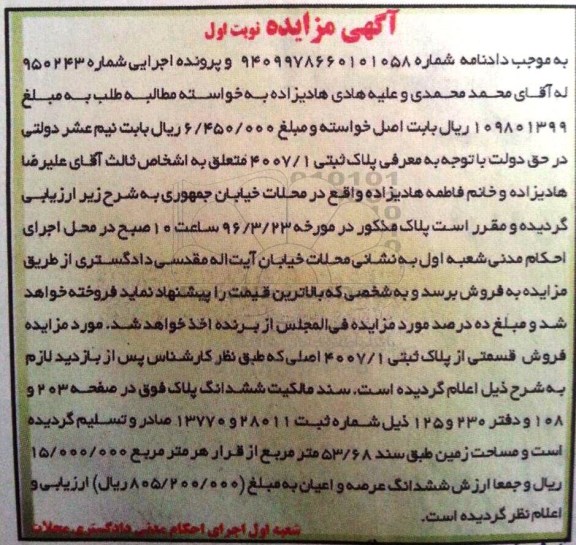 آگهی مزایده نوبت اول
به موجب دادنامه شماره ۹۴۰۹۹۷۸۶۶۰۱۰۱۰۵۸ و پرونده اجرایی شماره ۹۵۰۲۴۳
له آقای محمد محمدی و علیه هادی هادیزاده به خواسته مطالبه طلب به مبلغ
۱۰۹۸۰۱۳۹۹ ریال بابت اصل خواسته و مبلغ ۶/۴۵۰/۰۰۰ ریال بابت نیم عشر دولتی
در حق دولت با توجه به معرفی پلاک ثبتی ۴۰۰۷/۱ متعلق به اشخاص ثالث آقای علیرضا
هادیزاده و خانم فاطمه هادیزاده واقع در محلات خیابان جمهوری به شرح زیر ارزیابی
گردیده و مقرر است پلاک مذکور در مورخه ۹۶/۳/۲۳ ساعت ۱۰ صبح در محل اجرای
احکام مدنی شعبه اول به نشانی محلات خیابان آیت‌اله مقدسی دادگستری از طریق
مزایده به فروش برسد و به شخصی که بالاترین قیمت را پیشنهاد نماید فروخته خواهد
شد و مبلغ ده درصد مورد مزایده فی‌المجلس از برنده اخذ خواهد شد. مورد مزایده
فروش قسمتی از پلاک ثبتی ۴۰۰۷/۱ اصلی که طبق نظر کارشناس پس از بازدید لازم
به شرح ذیل اعلام گردیده است. سند مالکیت ششدانگ پلاک فوق در صفحه ۲۰۳ و
۱۰۸ و دفتر ۲۳۰ و ۱۲۵ ذیل شماره ثبت ۲۸۰۱۱ و ۱۳۷۷۰ صادر و تسلیم گردیده
است و مساحت زمین طبق سند ۵۳/۶۸ متر مربع از قرار هر متر مربع ۱۵/۰۰۰/۰۰۰
ریال و جمعا ارزش ششدانگ عرصه و اعیان به مبلغ (۸۰۵/۲۰۰/۰۰۰ ریال) ارزیابی و
اعلام نظر گردیده است.
شعبه اول اجرای احکام مدنی دادگستری محلات